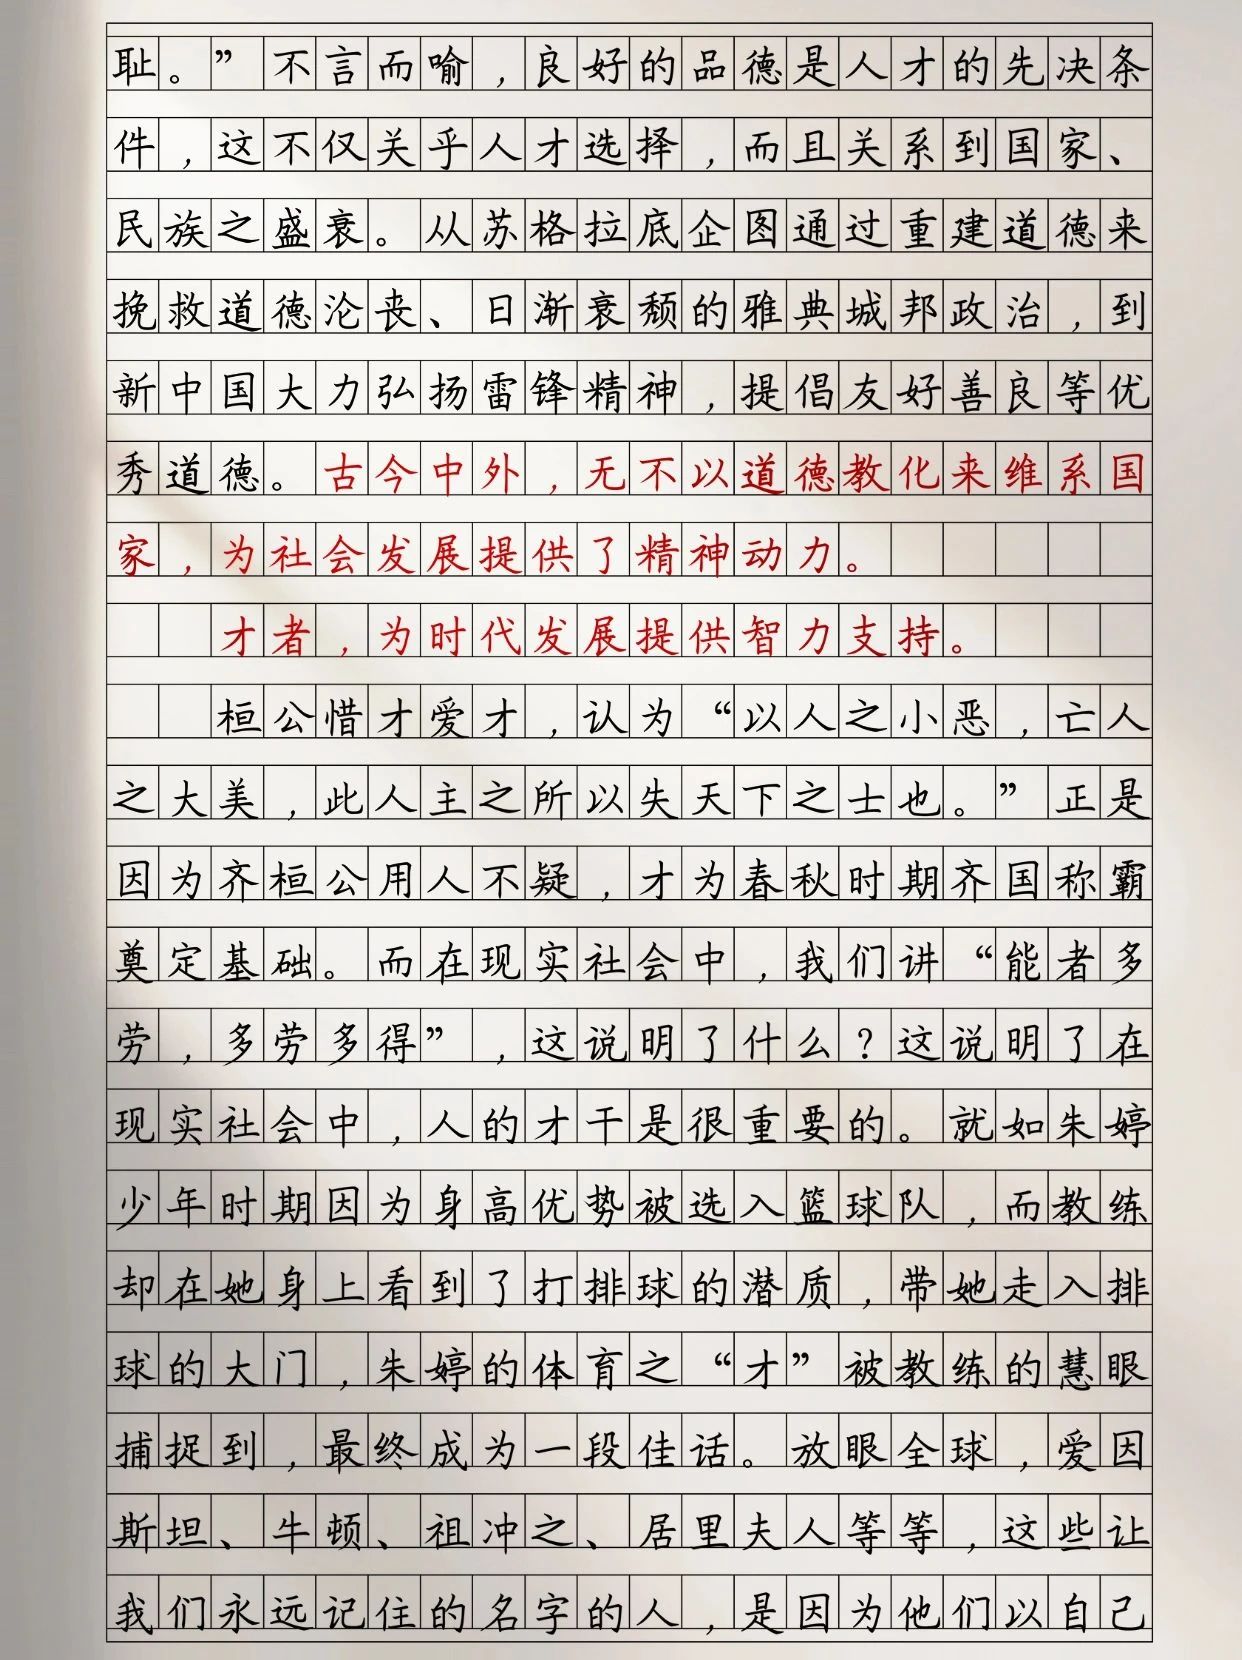 耻。”不言而喻，良好的品德是人才的先决条
件，这不仅关乎人才选择，而且关系到国家、
民族之盛衰。从苏格拉底企图通过重建道德来
挽救道德沦丧、日渐衰颓的雅典城邦政治，到
新中国大力弘扬雷锋精神，提倡友好善良等优
秀道德。古今中外，无不以道德教化来维系国
家，为社会发展提供了精神动力。
才者，为时代发展提供智力支持。
桓公惜才爱才，认为“以人之小恶，亡人
之大美，此人主之所以失天下之士也。”正是
因为齐桓公用人不疑，才为春秋时期齐国称霸
奠定基础。而在现实社会中，我们讲“能者多
劳，多劳多得”，这说明了什么？这说明了在
现实社会中，人的才干是很重要的。就如朱婷
少年时期因为身高优势被选入篮球队，而教练
却在她身上看到了打排球的潜质，带她走入排
球的大门，朱婷的体育之“才”被教练的慧眼
捕捉到，最终成为一段佳话。放眼全球，爱因
斯坦、牛顿、祖冲之、居里夫人等等，这些让
我们永远记住的名字的人，是因为他们以自己